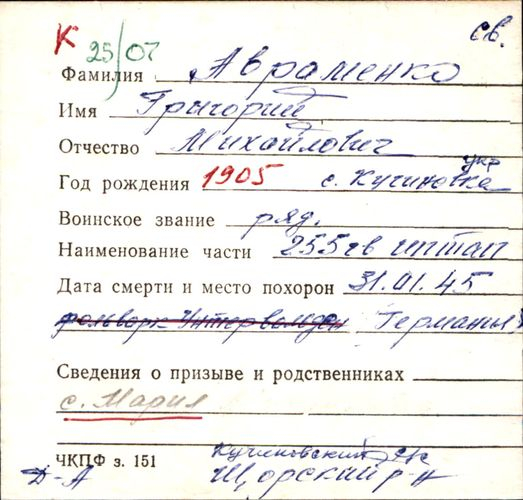 К 25/07 св.
Фамилия Авраменко
Имя Григорий
Отчество Михайлович
укр
Год рождения 1905 с. Кучиновка
Воинское звание ряд.
Наименование части 255 гв иптап
Дата смерти и место похорон 31.01.45
фольварк Унтервальден Германия
Сведения о призыве и родственниках
с. Мария
ЧКПФ з. 151 Кучиновский с/с
Д-А Щорский р-н